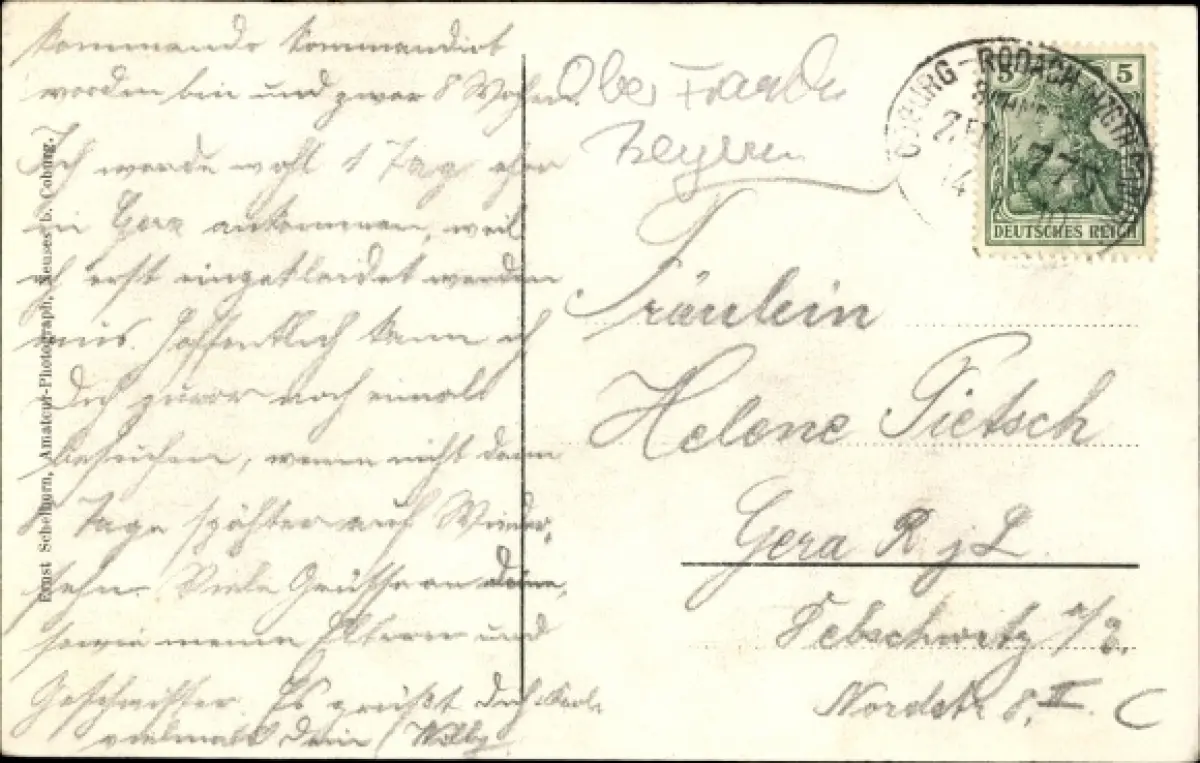 Kommando kommandirt
worden bin und zwar 8 Wochen.
Ich werde wohl 1 Tag eher
in Gera ankommen, weil
ich erst eingekleidet werden
mus. Hoffentlich kann ich
Dich zuvor noch einmal
besuchen, wenn nicht dann
8 Tage spähter auf Wieder,
sehn. Viele Grüsse an deine,
sowie meine Eltern und
Geschwister. Es grüßt dich
vielmals Dein Willy
Ernst Schellhorn, Amateur-Photograph, Neuses b. Coburg.
Ober
COBURG - RODACH
5 5
DEUTSCHES REICH
Fräulein
Helene Pietsch
Gera R j L
Debschwitz a/E.
Nordstr. 8, II